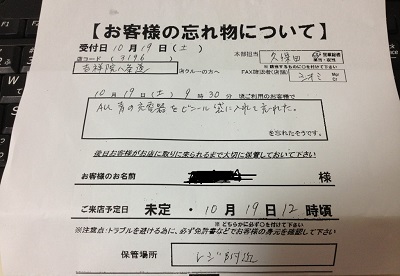 【お客様の忘れ物について】
受付日 10月 19日 (土)
本部担当 久保田
店コード (3196)
吉祥院八条通 店クルーの方へ
FAX確認者(店舗)
10月 19日(土) 9時 30分頃ご利用のお客様で
AU 青の充電器をビニール袋に入れて忘れた。
を忘れたそうです。
後日お客様がお店に取りに来られるまで大切に保管しておいて下さい
お客様のお名前 様
ご来店予定日 未定 ・ 10月 19日 12時頃
※どちらかに必ず○を付けて下さい
※注意点・トラブルを避ける為に、必ず免許書などでお客様の身元を確認して下さい
保管場所 レジ付近